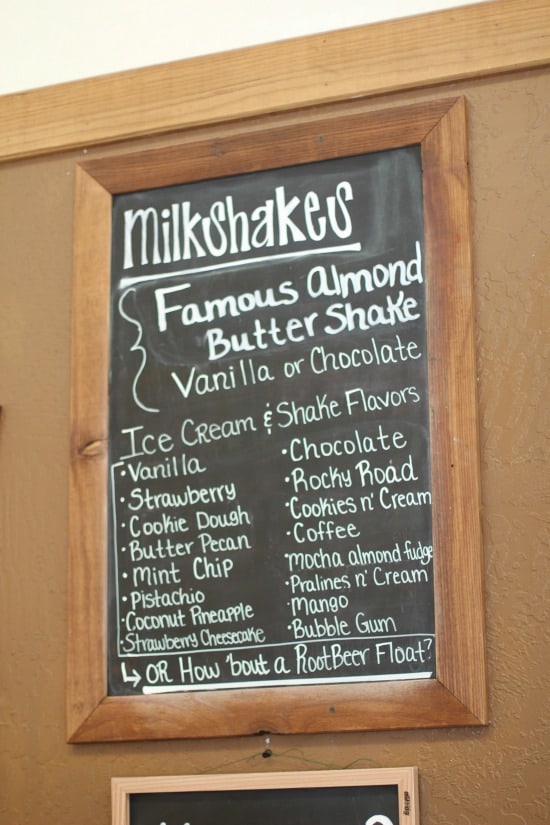 Milkshakes
Famous Almond
Butter Shake
Vanilla or Chocolate
Ice Cream & Shake Flavors
·Vanilla
·Strawberry
·Cookie Dough
·Butter Pecan
·Mint Chip
·Pistachio
·Coconut Pineapple
·Strawberry Cheesecake
·Chocolate
·Rocky Road
·Cookies n' Cream
·Coffee
·Mocha almond fudge
·Pralines n' Cream
·Mango
·Bubble Gum
↳ OR How 'bout a RootBeer Float?